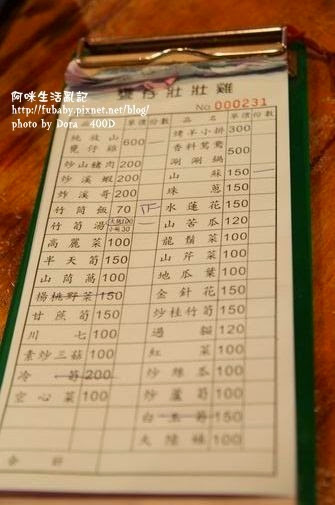 阿咪生活亂記
http://fubaby.pixnet.net/blog/
photo by Dora 400D
甕仔壯壯雞
No 000231
單價 份數 單價 份數
純放山甕仔雞 600
烤羊小排 300
香料鴛鴦涮涮鍋 500
炒山豬肉 200
山蘇 150 一
炒溪蝦 200
珠蔥 150
炒溪哥 200
水蓮花 150
竹筒飯 70 正
山苦瓜 120
竹筍湯 大碗100 小碗30 一
龍鬚菜 100
高麗菜 100
山芹菜 100
半天筍 150
地瓜葉 100
山茼萵 100
金針花 150
楊桃野菜 150
炒桂竹筍 150
甘蔗筍 150
過貓 120
川七 100
紅菜 100
素炒三菇 100
炒絲瓜 100
冷筍 200
炒蘆筍 100
空心菜 100
白玉筍 150
大陸妹 100
合計